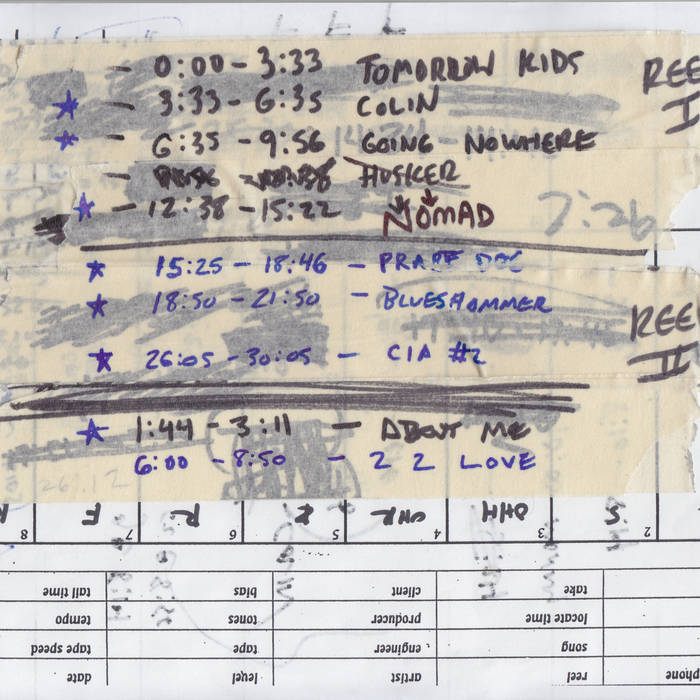 - 0:00 - 3:33 TOMORROW KIDS
REEL I
★ - 3:33 - 6:35 COLIN
★ - 6:35 - 9:56 GOING NOWHERE
- HUSKER
★ - 12:38 - 15:22 NOMAD
2:26
★ 15:25 - 18:46 -
★ 18:50 - 21:50 - BLUESHAMMER
REEL II
★ 26:05 - 30:05 - CIA #2
★ 1:44 - 3:11 - ABOUT ME
6:00 - 8:50 - 2 2 LOVE
8 F 7 R 6 K 5 4 HH 3 S 2
tail time bias client take
tempo tones producer locate time
tape speed tape engineer song
date level artist reel phone